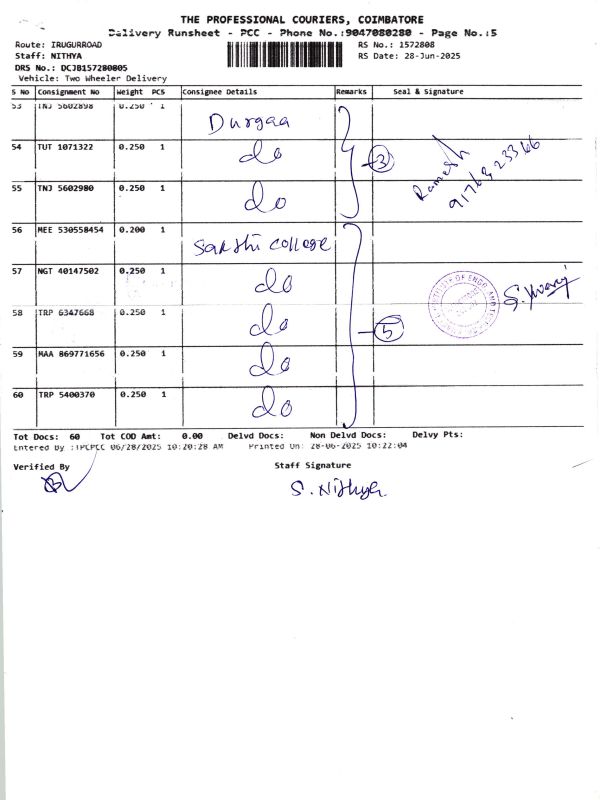 THE PROFESSIONAL COURIERS, COIMBATORE
Delivery Runsheet - PCC - Phone No.:9047080280 - Page No.:5
Route: IRUGURROAD
RS No.: 1572808
Staff: NITHYA
RS Date: 28-Jun-2025
DRS No.: DCJB157280805
Vehicle: Two Wheeler Delivery
S No Consignment No Weight PCS Consignee Details Remarks Seal & Signature
53 TNJ 5602898 0.250 1 Durgaa
54 TUT 1071322 0.250 1 do 3 Ramesh
55 TNJ 5602980 0.250 1 do
56 MEE 530558454 0.200 1 Sakthi college
57 NGT 40147502 0.250 1 do
58 TRP 6347668 0.250 1 do 5
59 MAA 869771656 0.250 1 do
60 TRP 5400370 0.250 1 do
Tot Docs: 60 Tot COD Amt: 0.00 Delvd Docs: Non Delvd Docs: Delvy Pts:
Entered By :TPCPCC 06/28/2025 10:20:28 AM Printed On: 28-06-2025 10:22:04
Verified By Staff Signature
S. Nithya